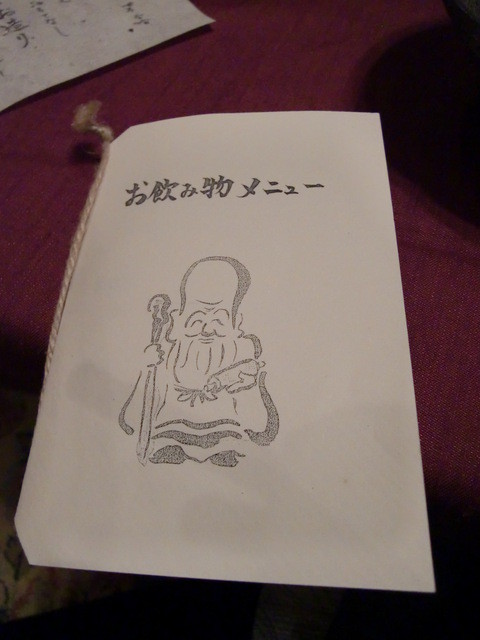 お飲み物メニュー